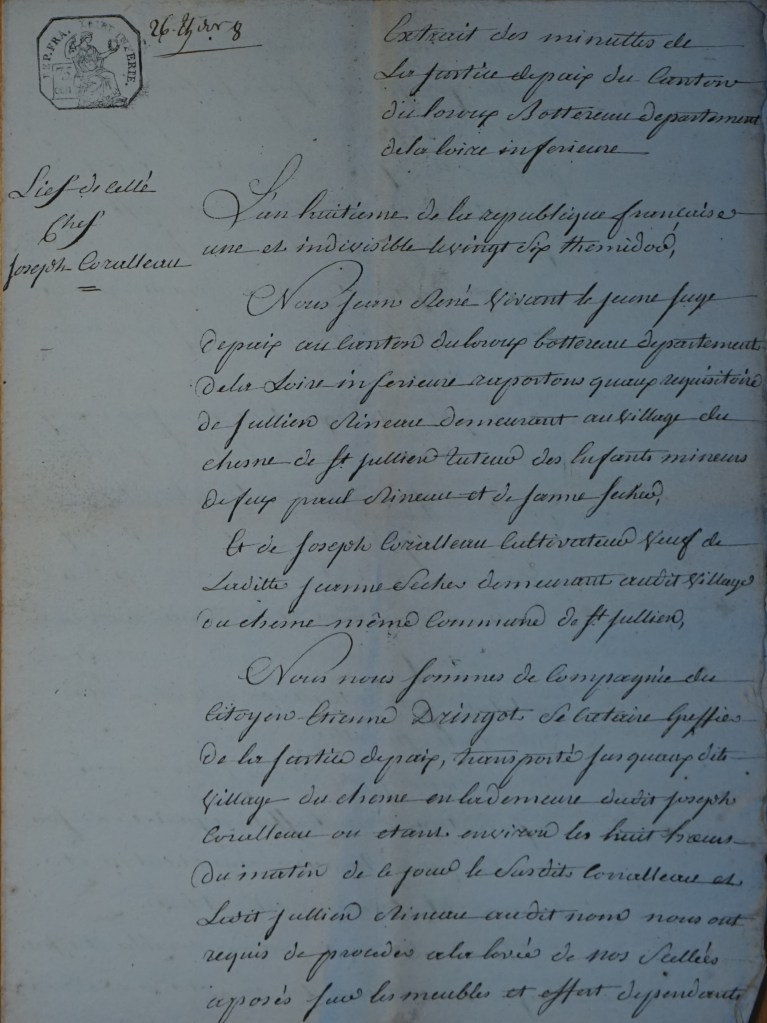 REP. FRA. LOIRE INFERIE.
26 Ther 8
Extrait des minuttes de
La justice depaix du Canton
du loroux Bottereau departement
dela loire inferieure
Lief de cellé
Chef
Joseph Coralleau
L'an huitieme de la republique françaisse
une et indivisible le vingt six themidor,
Nous jean René Vivant le jeune juge
depaix au Canton du loroux bottereau departement
dela Loire inferieure raportons quaux requisitoire
de Jullien Rineau demeurant au Village du
chesne de St Jullien tuteur des Enfants mineurs
defeux paul Rineau et de janne secher,
Et de Joseph Coralleau Cultivateur Veuf de
Laditte jeanne Secher demeurant audit Village
du chesne même Commune de St jullien,
Nous nous sommes de Compagnée du
Citoyen Etienne Dringot Secretaire Greffier
de la justice depaix, transporté jusquaux dit
Village du chesne en lademeure dudit joseph
Coralleau ou étant environ les huit hœurs
du matin de ce jour le susdit Coralleau et
Ledit jullien Rineau audit nom nous ont
requis de proceder a la levée de nos Scellées
aposés sur les meubles et effert dependants